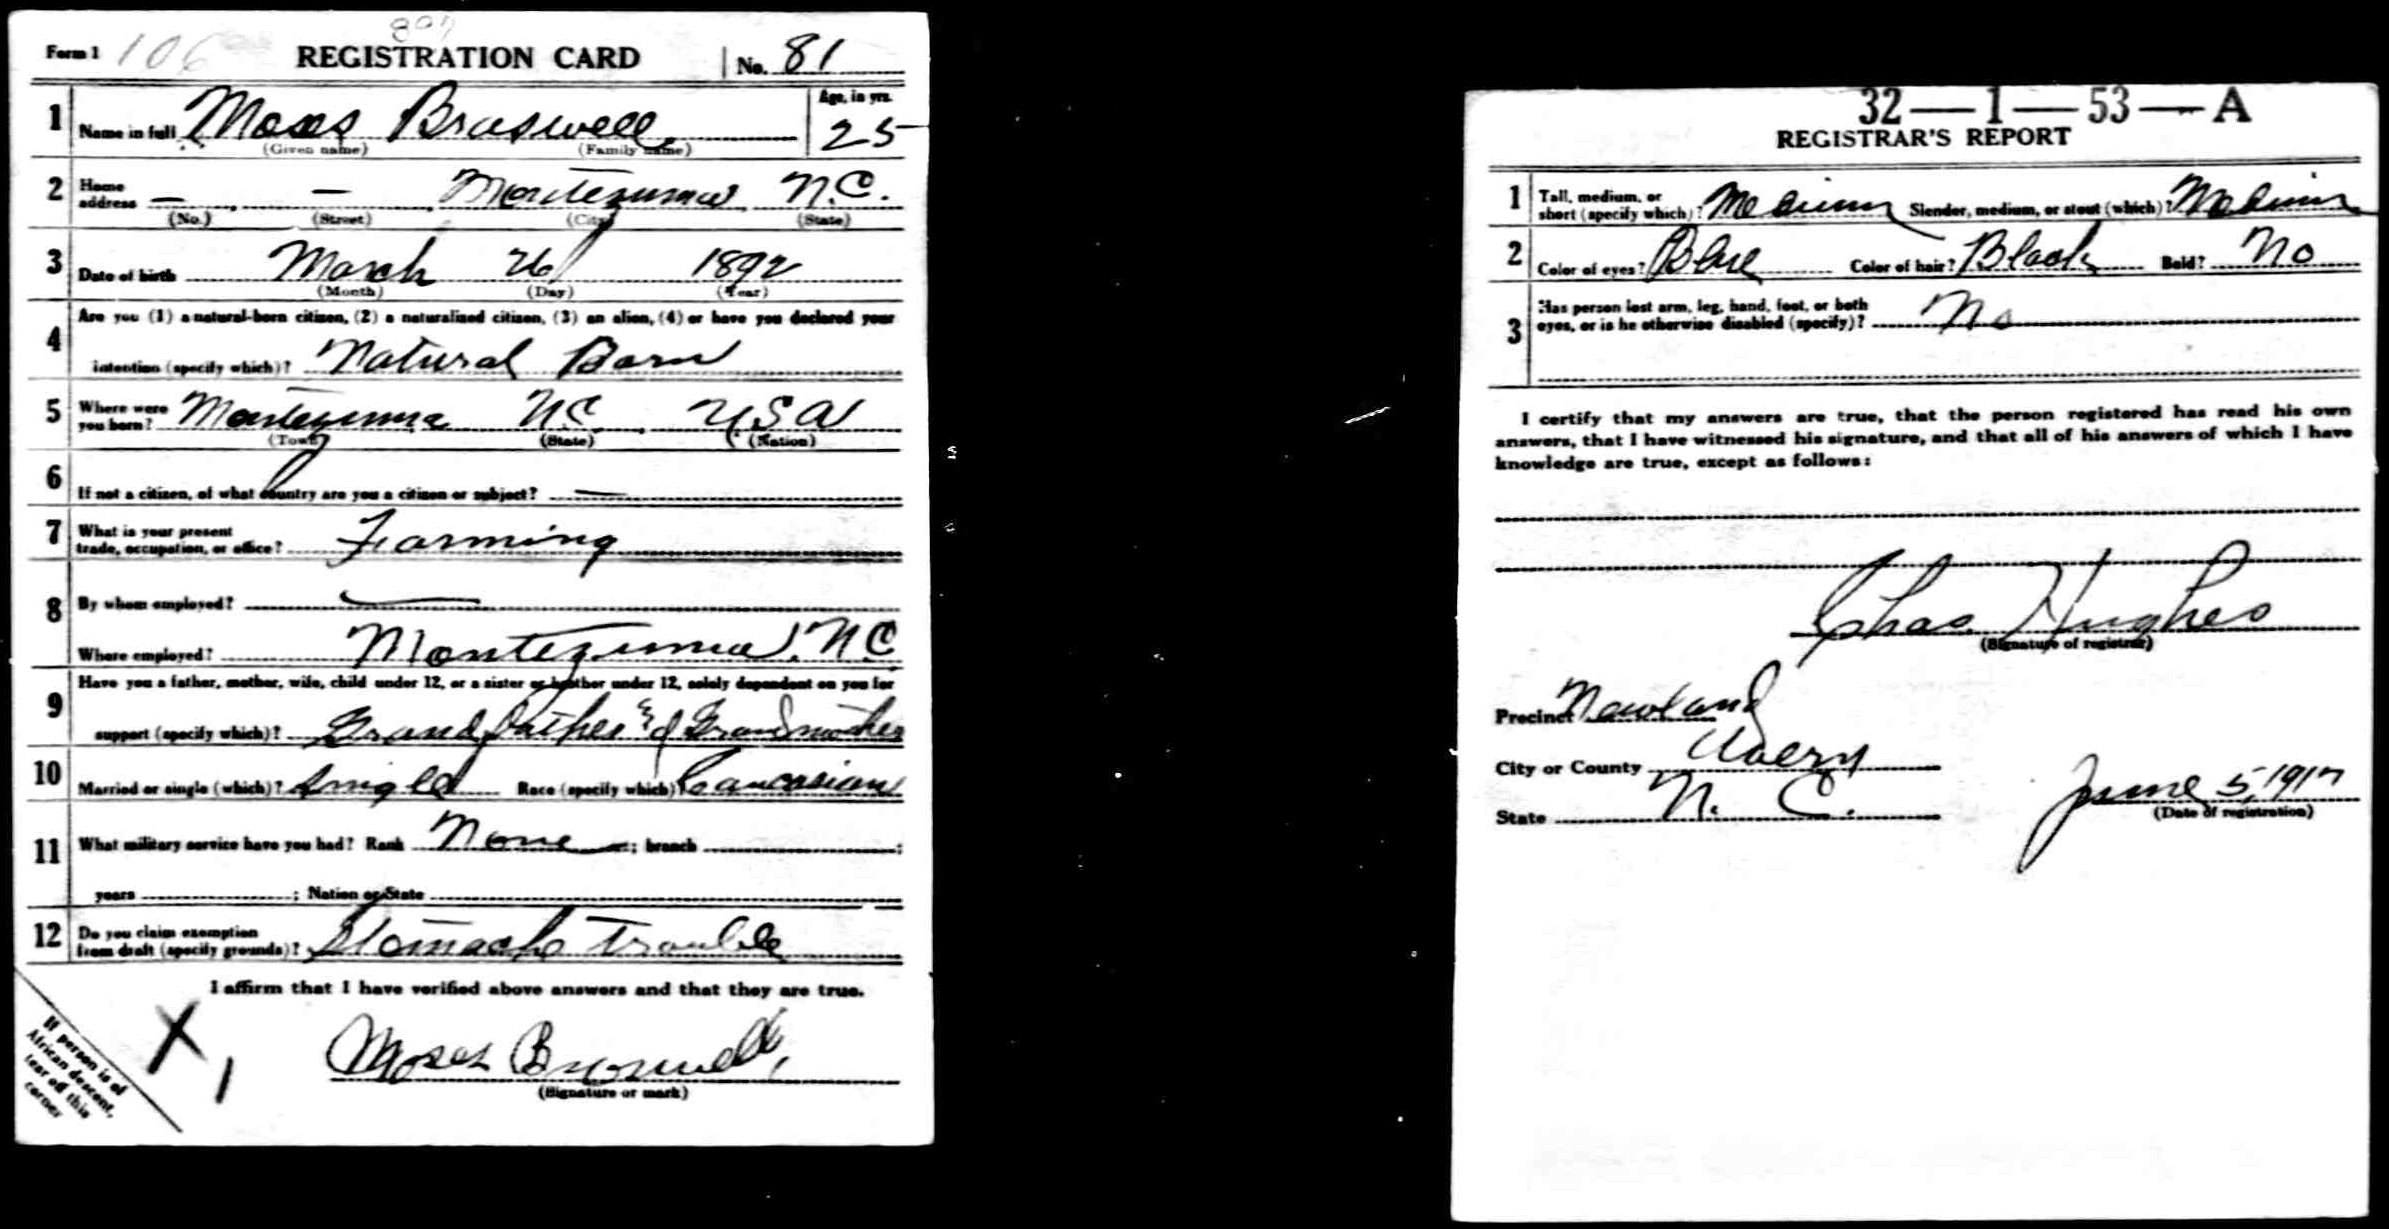 897
Form 1 106 REGISTRATION CARD No. 81
1 Name in full Moses Braswell Age, in yrs. 25
(Given name) (Family name)
2 Home address — — Montezuma N.C.
(No.) (Street) (City) (State)
3 Date of birth March 26 1892
(Month) (Day) (Year)
4 Are you (1) a natural-born citizen, (2) a naturalized citizen, (3) an alien, (4) or have you declared your
intention (specify which)? Natural Born
5 Where were you born? Montezuma N.C. USA
(Town) (State) (Nation)
6 If not a citizen, of what country are you a citizen or subject? —
7 What is your present trade, occupation, or office? Farming
8 By whom employed? —
Where employed? Montezuma, N.C.
9 Have you a father, mother, wife, child under 12, or a sister or brother under 12, solely dependent on you for
support (specify which)? Grand father & Grandmother
10 Married or single (which)? Single Race (specify which)? Caucasian
11 What military service have you had? Rank None ; branch ;
years ; Nation or State
12 Do you claim exemption from draft (specify grounds)? Stomach trouble
I affirm that I have verified above answers and that they are true.
X 1
Moses Braswell
(Signature or mark)
If person is of
African descent,
tear off this
corner
32—1—53—A
REGISTRAR'S REPORT
1 Tall, medium, or short (specify which)? Medium Slender, medium, or stout (which)? Medium
2 Color of eyes? Blue Color of hair? Black Bald? No
3 Has person lost arm, leg, hand, foot, or both
eyes, or is he otherwise disabled (specify)? No
I certify that my answers are true, that the person registered has read his own
answers, that I have witnessed his signature, and that all of his answers of which I have
knowledge are true, except as follows:
Chas Hughes
(Signature of registrar)
Precinct Newland
City or County Avery
State N. C.
June 5, 1917
(Date of registration)